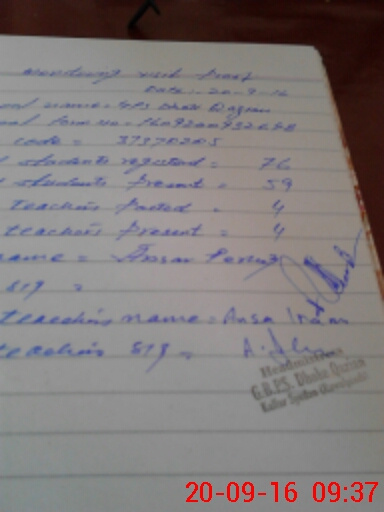 monitoring visit proof
Date:- 20-9-16
name = GPS Dhoke Qazian
form no = 
code = 37370205
students registered = 76
students present = 59
teachers posted = 4
teachers present = 4
name = Ansar
sig =
teachers name = Ansa Inam
teachers sig =
Headmistress
G.B.P.S. Dhoke Qazian
Kallar Syedan (Rawalpindi)
20-09-16 09:37